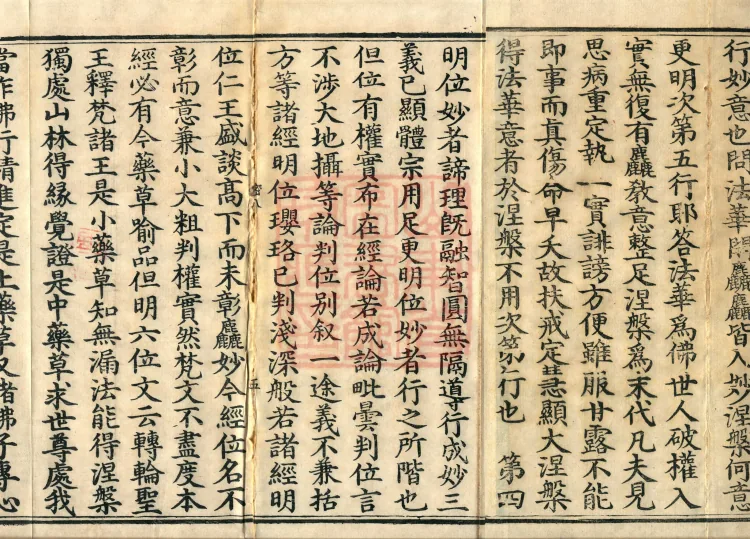 行妙意也問法華開麤麤皆入妙涅槃何意
更明次第五行耶答法華為佛世人破權入
實無復有麤教意整足涅槃為末代凡夫見
思病重定執一實誹謗方便雖服甘露不能
即事而真傷命早夭故扶戒定慧顯大涅槃
得法華意者於涅槃不用次第行也 第四
明位妙者諦理既融智圓無隔導行成妙三
義已顯體宗用足更明位妙者行之所階也
但位有權實布在經論若成論毗曇判位言
不涉大地攝等論判位別叙一途義不兼括
方等諸經明位瓔珞已判淺深般若諸經明
位仁王盛談髙下而未彰麤妙今經位名不
彰而意兼小大粗判權實然梵文不盡度本
經必有今藥草喻品但明六位文云轉輪聖
王釋梵諸王是小藥草知無漏法能得涅槃
獨處山林得緣覺證是中藥草求世尊處我
當作佛行精進定是上藥草又諸佛子專心